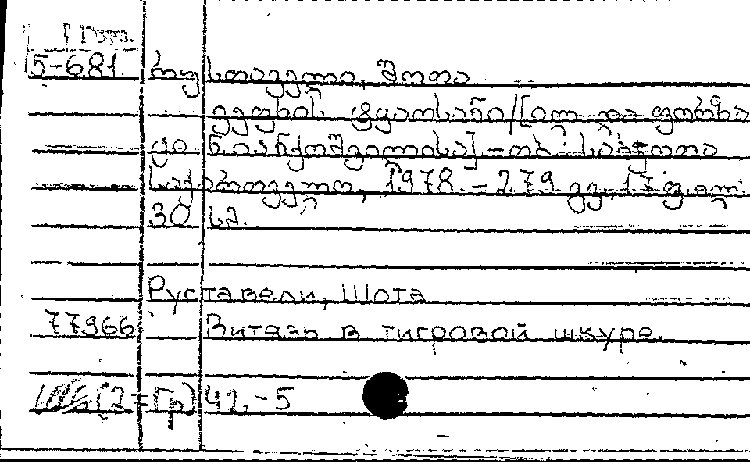 Груз.
5-681 რუსთაველი, შოთა
ვეფხის ტყაოსანი/[ილ. და ფორზა
ცი ნ. იანქოშვილისა] - თბ.: საბჭოთა
საქართველო, 1978. - 279 გვ., 17 ფ. ილ.
30 სმ.
Руставели, Шота
77966 Витязь в тигровой шкуре.
(2=Гр) 41.-5